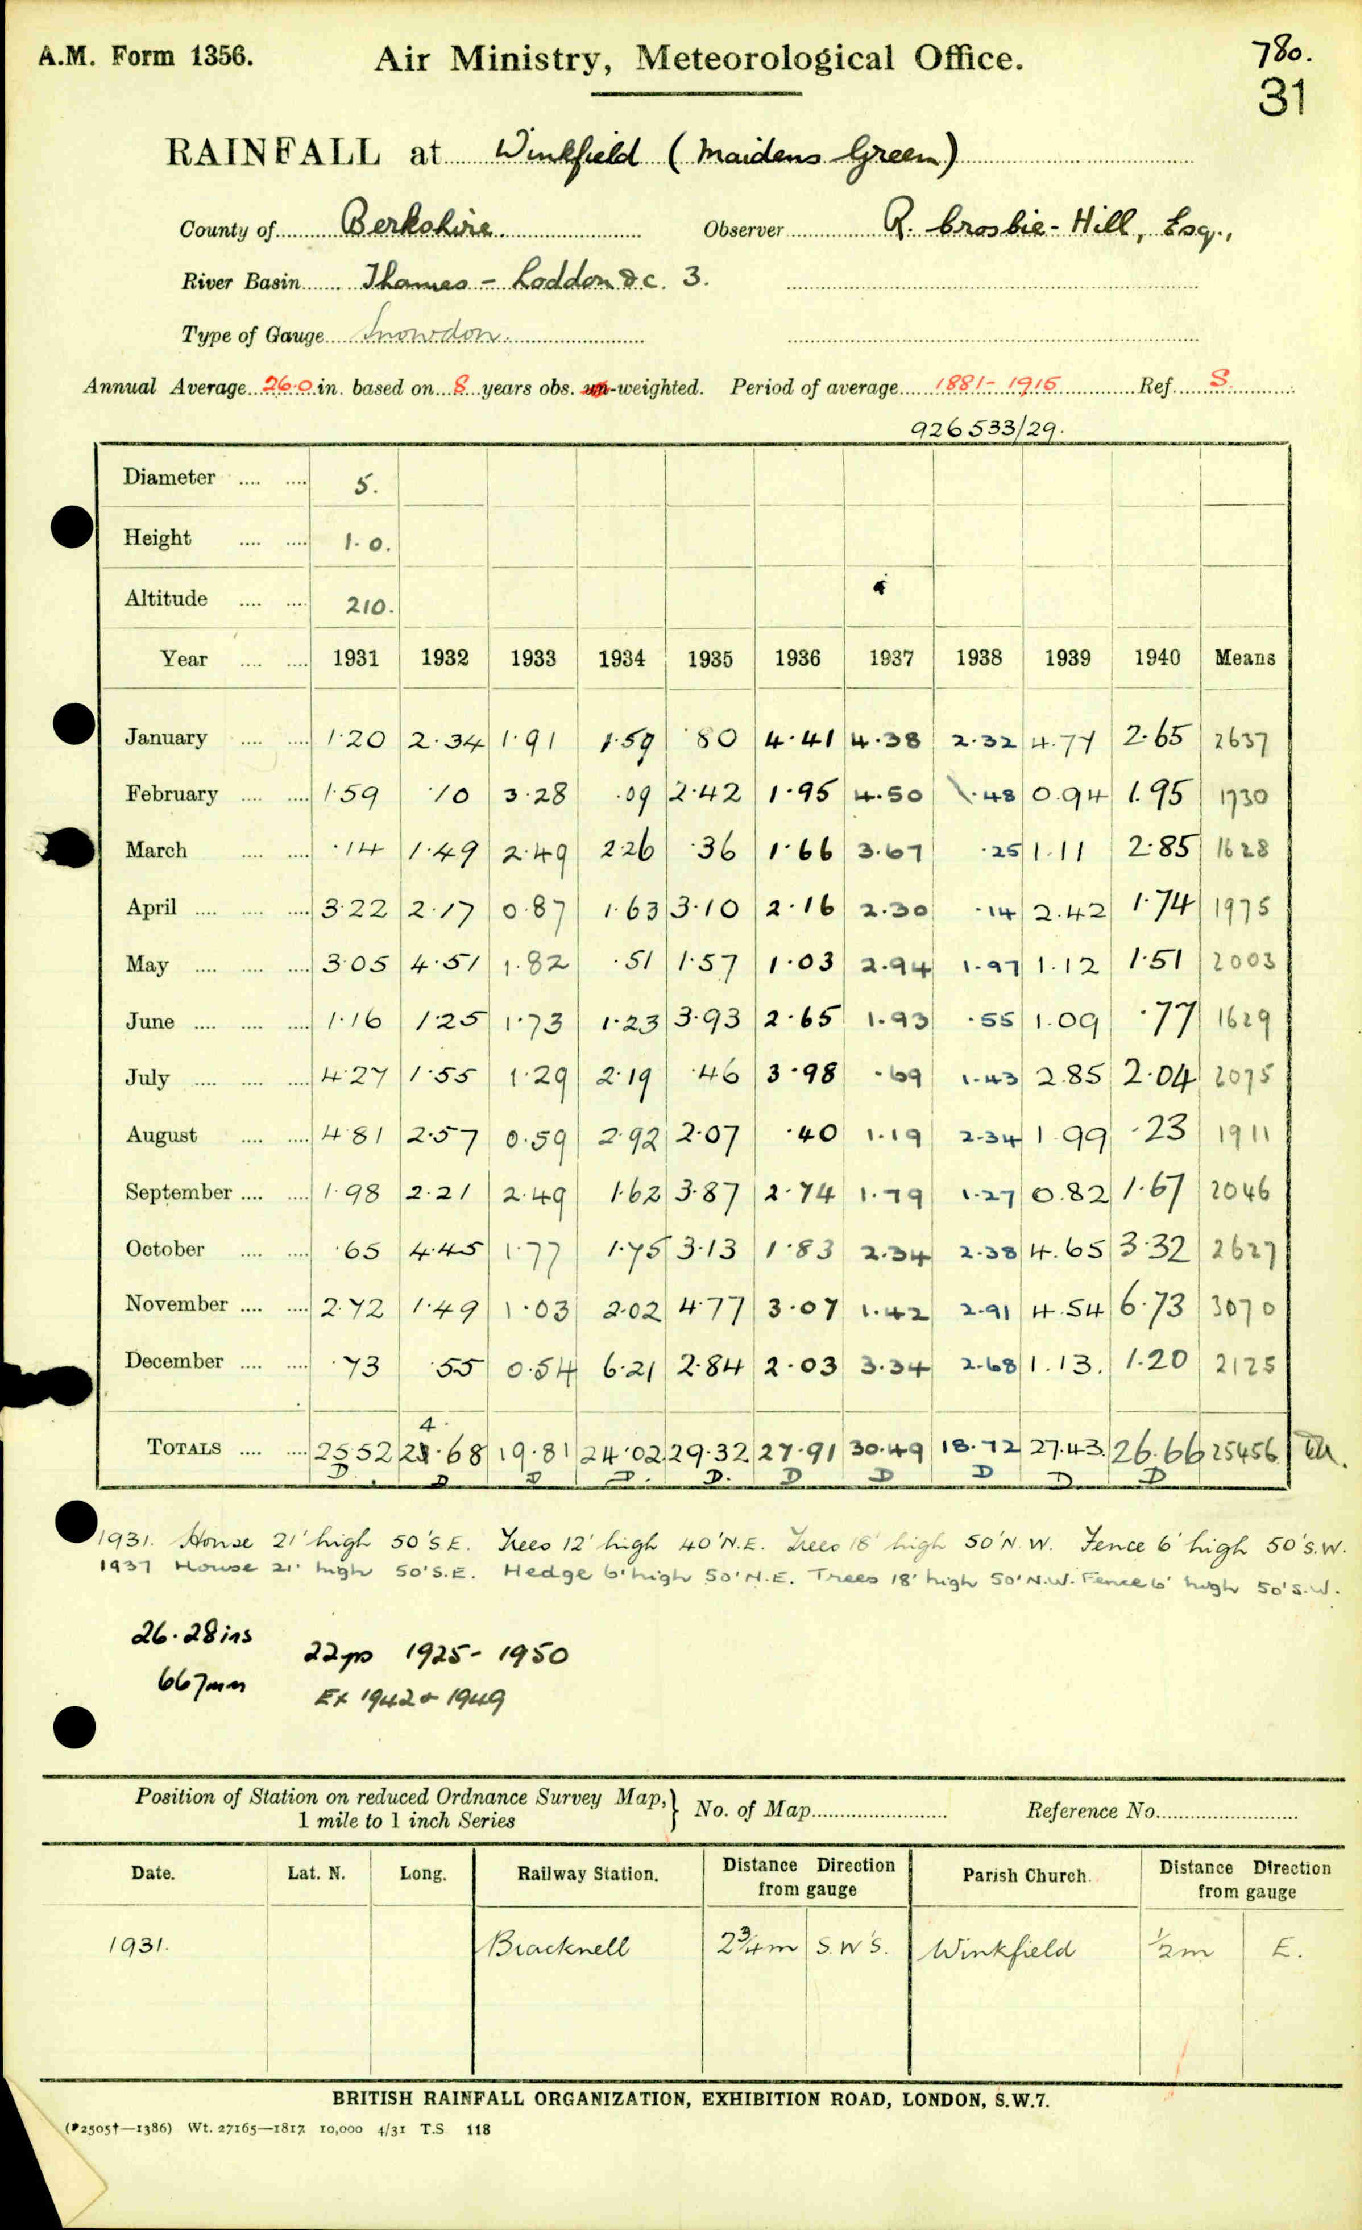 A.M. Form 1356. Air Ministry, Meteorological Office. 780.
31
RAINFALL at Winkfield (Maidens Green)
County of Berkshire Observer R. Crosbie-Hill, Esq.,
River Basin Thames - Loddon &c. 3.
Type of Gauge Snowdon.
Annual Average 26.0 in. based on 8 years obs. un-weighted. Period of average 1881-1915 Ref S.
926533/29.
Diameter 5.
Height 1.0.
Altitude 210.
Year 1931 1932 1933 1934 1935 1936 1937 1938 1939 1940 Means
January 1.20 2.34 1.91 1.59 .80 4.41 4.38 2.32 4.77 2.65 2637
February 1.59 .10 3.28 .09 2.42 1.95 4.50 .48 0.94 1.95 1730
March .14 1.49 2.49 2.26 .36 1.66 3.67 .25 1.11 2.85 1628
April 3.22 2.17 0.87 1.63 3.10 2.16 2.30 .14 2.42 1.74 1975
May 3.05 4.51 1.82 .51 1.57 1.03 2.94 1.97 1.12 1.51 2003
June 1.16 1.25 1.73 1.23 3.93 2.65 1.93 .55 1.09 .77 1629
July 4.27 1.55 1.29 2.19 .46 3.98 .69 1.43 2.85 2.04 2075
August 4.81 2.57 0.59 2.92 2.07 .40 1.19 2.34 1.99 .23 1911
September 1.98 2.21 2.49 1.62 3.87 2.74 1.79 1.27 0.82 1.67 2046
October .65 4.45 1.77 1.75 3.13 1.83 2.34 2.38 4.65 3.32 2627
November 2.72 1.49 1.03 2.02 4.77 3.07 1.42 2.91 4.54 6.73 3070
December .73 .55 0.54 6.21 2.84 2.03 3.34 2.68 1.13. 1.20 2125
4
TOTALS 25.52 23.68 19.81 24.02 29.32 27.91 30.49 18.72 27.43 26.66 25456
D. D D D. D. D D D D D
1931. House 21' high 50' S.E. Trees 12' high 40' N.E. Trees 18' high 50' N.W. Fence 6' high 50' S.W.
1937 House 21' high 50' S.E. Hedge 6' high 50' N.E. Trees 18' high 50' N.W. Fence 6' high 50' S.W.
26.28 ins 22 yrs 1925-1950
667mm Ex 1942 & 1949
Position of Station on reduced Ordnance Survey Map, 1 mile to 1 inch Series } No. of Map Reference No.
Date. Lat. N. Long. Railway Station. Distance Direction from gauge Parish Church. Distance Direction from gauge
1931. Bracknell 2¾m S.W'S. Winkfield ½m E.
BRITISH RAINFALL ORGANIZATION, EXHIBITION ROAD, LONDON, S.W.7.
(*2505†—1386) Wt. 27165—1817 10,000 4/31 T.S 118